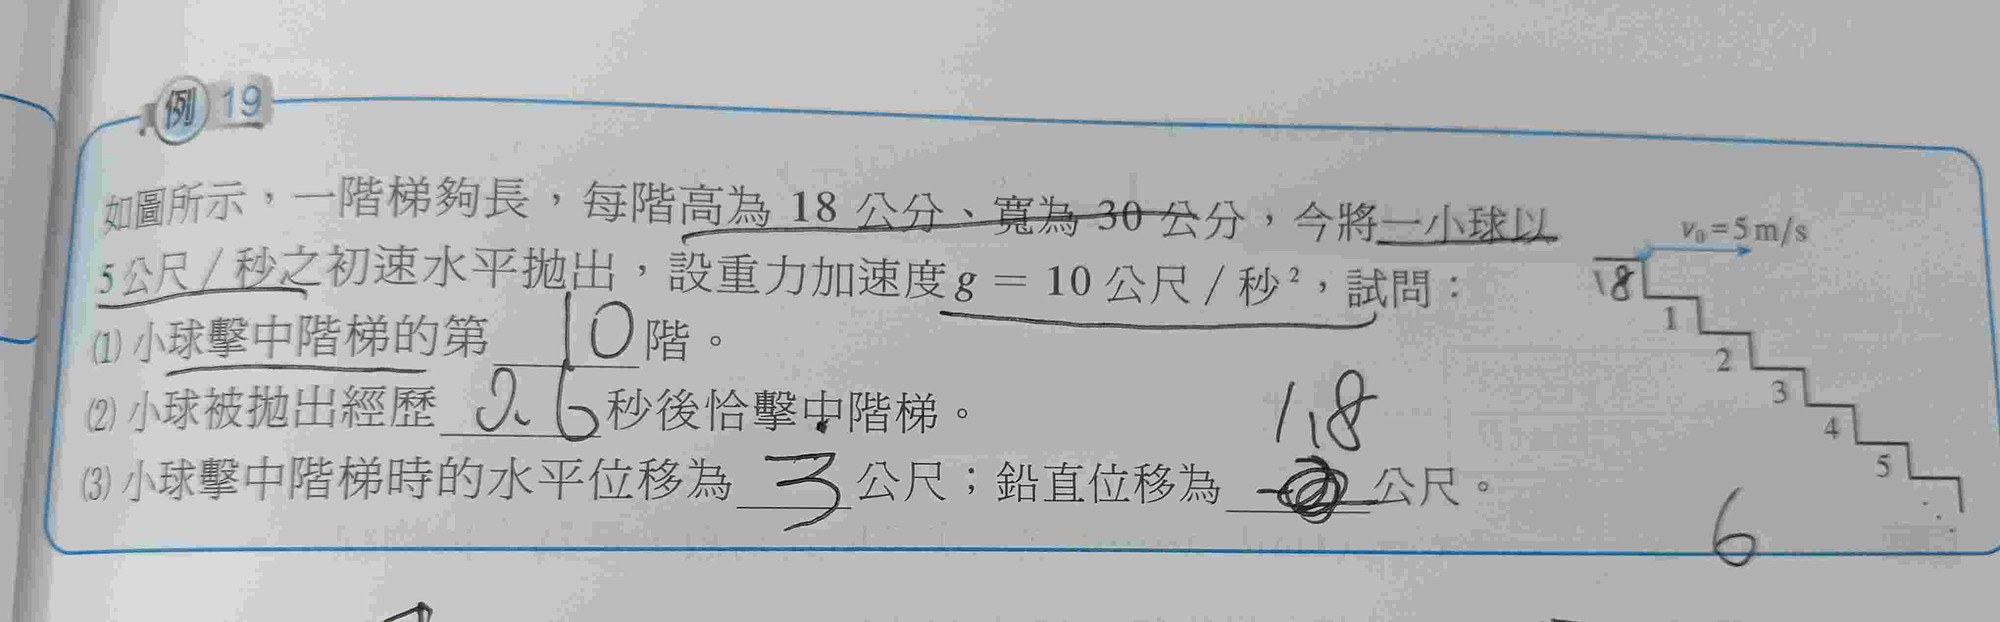 例 19
如圖所示，一階梯夠長，每階高為 18 公分、寬為 30 公分，今將一小球以
5公尺／秒之初速水平拋出，設重力加速度 g = 10 公尺／秒²，試問：
(1) 小球擊中階梯的第 10 階。
(2) 小球被拋出經歷 0.6 秒後恰擊中階梯。
(3) 小球擊中階梯時的水平位移為 3 公尺；鉛直位移為 公尺。
1.8
v₀=5m/s
18
1
2
3
4
5
6